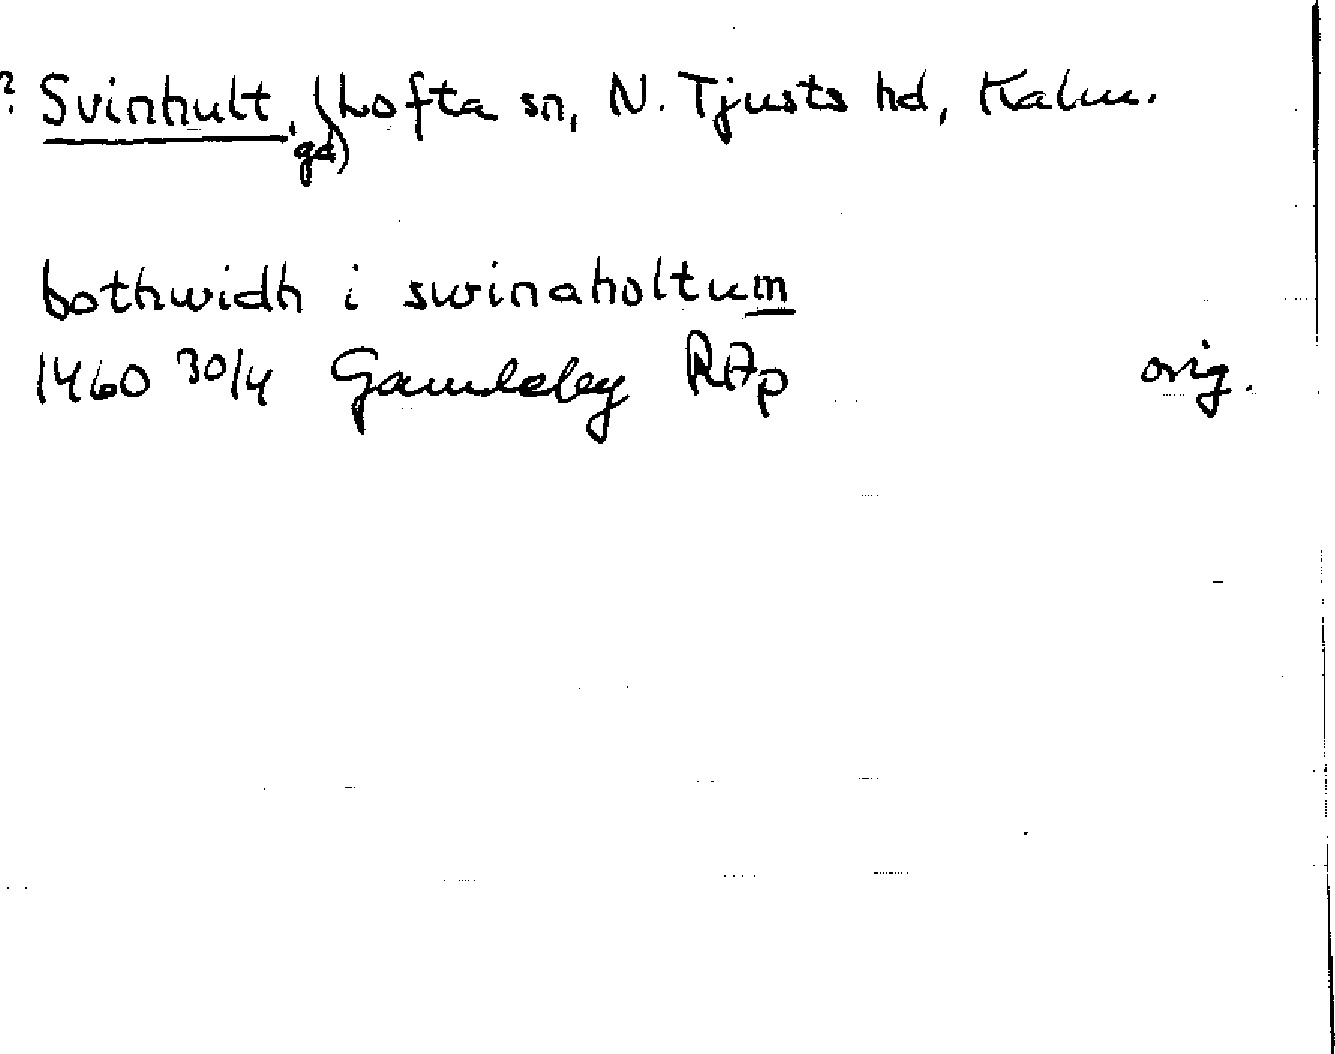 ? Svinhult, gd) Lofta sn, N. Tjusts hd, Kalm.
bothwidh i swinaholtum
1460 30/4 Gamleby RAp orig.